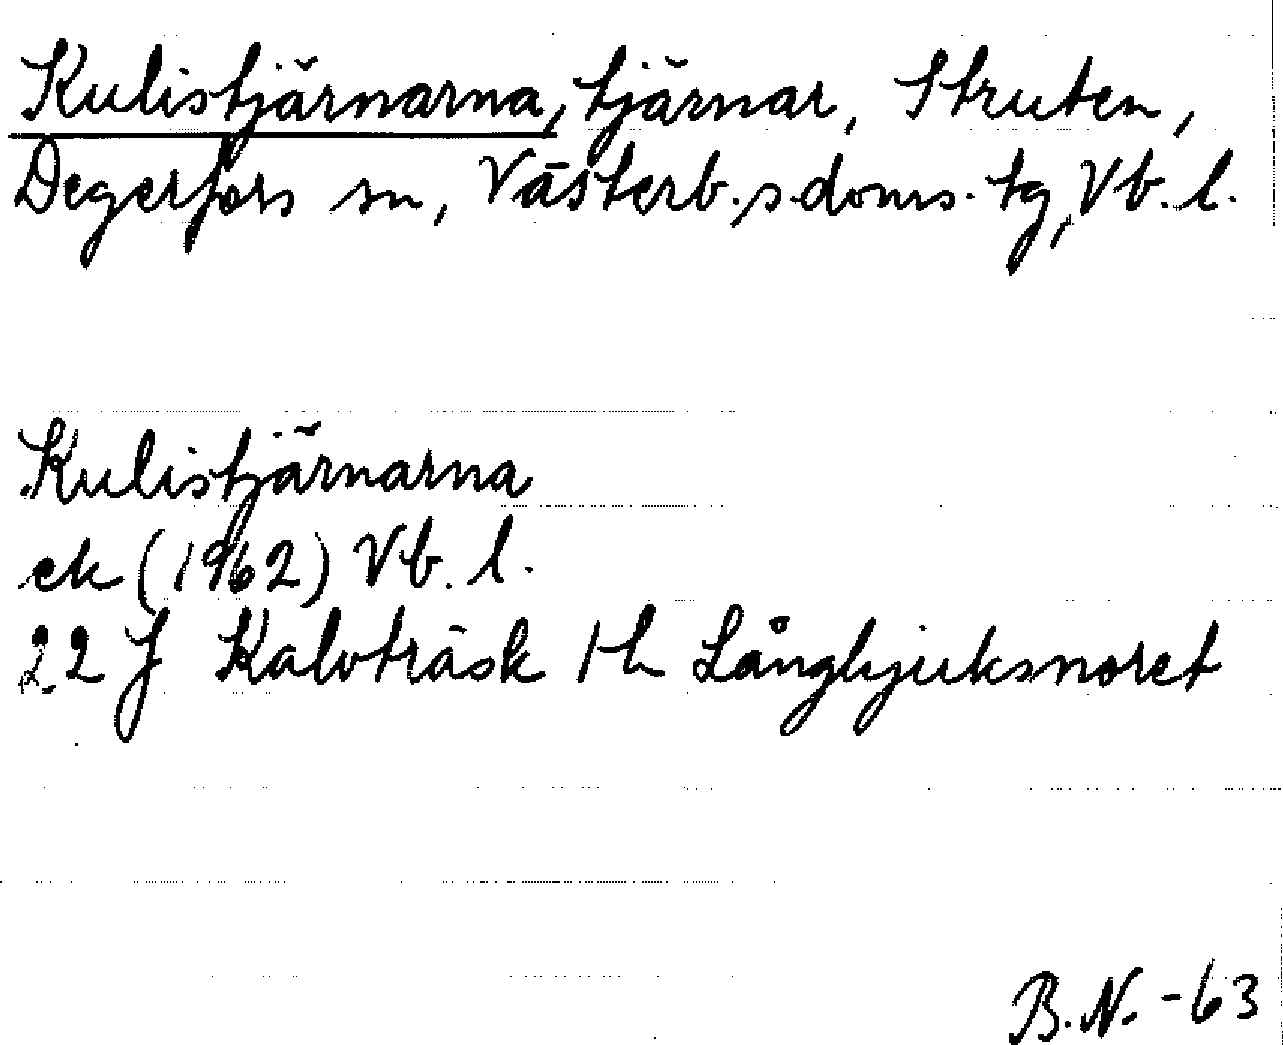 Kulistjärnarna, tjärnar, Struten,
Degerfors sn, Västerb.s.doms. tg, Vb. l.
Kulistjärnarna
ek (1962) Vb. l.
22 J Kalvträsk 1 h Långbjuksnoret
B.N. -63